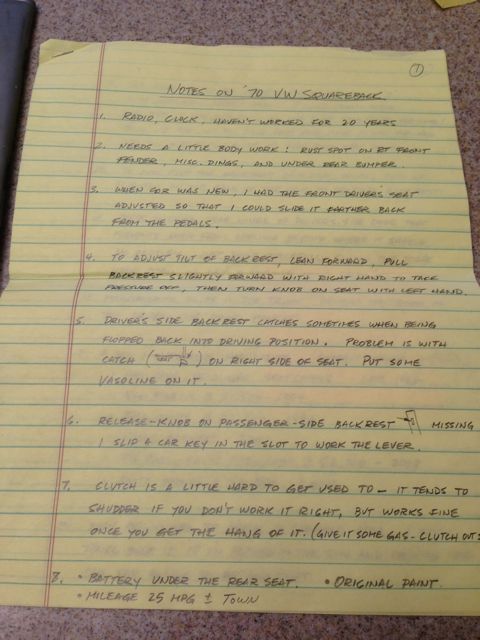 1
NOTES ON '70 VW SQUAREBACK
1. RADIO, CLOCK, HAVEN'T WORKED FOR 20 YEARS
2. NEEDS A LITTLE BODY WORK: RUST SPOT ON RT FRONT
FENDER, MISC. DINGS, AND UNDER REAR BUMPER.
3. WHEN CAR WAS NEW, I HAD THE FRONT DRIVER'S SEAT
ADJUSTED SO THAT I COULD SLIDE IT FARTHER BACK
FROM THE PEDALS.
4. TO ADJUST TILT OF BACKREST, LEAN FORWARD, PULL
BACKREST SLIGHTLY FORWARD WITH RIGHT HAND TO TAKE
PRESSURE OFF, THEN TURN KNOB ON SEAT WITH LEFT HAND.
5. DRIVER'S SIDE BACKREST CATCHES SOMETIMES WHEN BEING
FLOPPED BACK INTO DRIVING POSITION. PROBLEM IS WITH
CATCH ( ) ON RIGHT SIDE OF SEAT. PUT SOME
VASOLINE ON IT.
6. RELEASE-KNOB ON PASSENGER-SIDE BACKREST MISSING
I SLIP A CAR KEY IN THE SLOT TO WORK THE LEVER.
7. CLUTCH IS A LITTLE HARD TO GET USED TO - IT TENDS TO
SHUDDER IF YOU DON'T WORK IT RIGHT, BUT WORKS FINE
ONCE YOU GET THE HANG OF IT. (GIVE IT SOME GAS - CLUTCH OUT
8. • BATTERY UNDER THE REAR SEAT. • ORIGINAL PAINT.
• MILEAGE 25 MPG ± TOWN